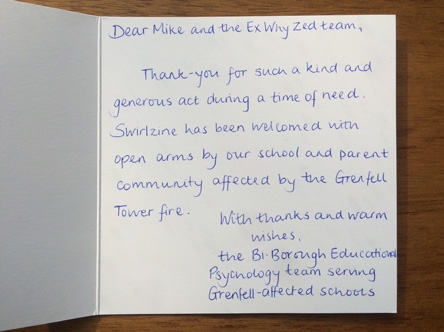 Dear Mike and the Ex Why Zed team,
Thank-you for such a kind and
generous act during a time of need.
Swirlzine has been welcomed with
open arms by our school and parent
community affected by the Grenfell
Tower fire.
With thanks and warm
wishes,
the Bi-Borough Educational
Psychology team serving
Grenfell-affected schools